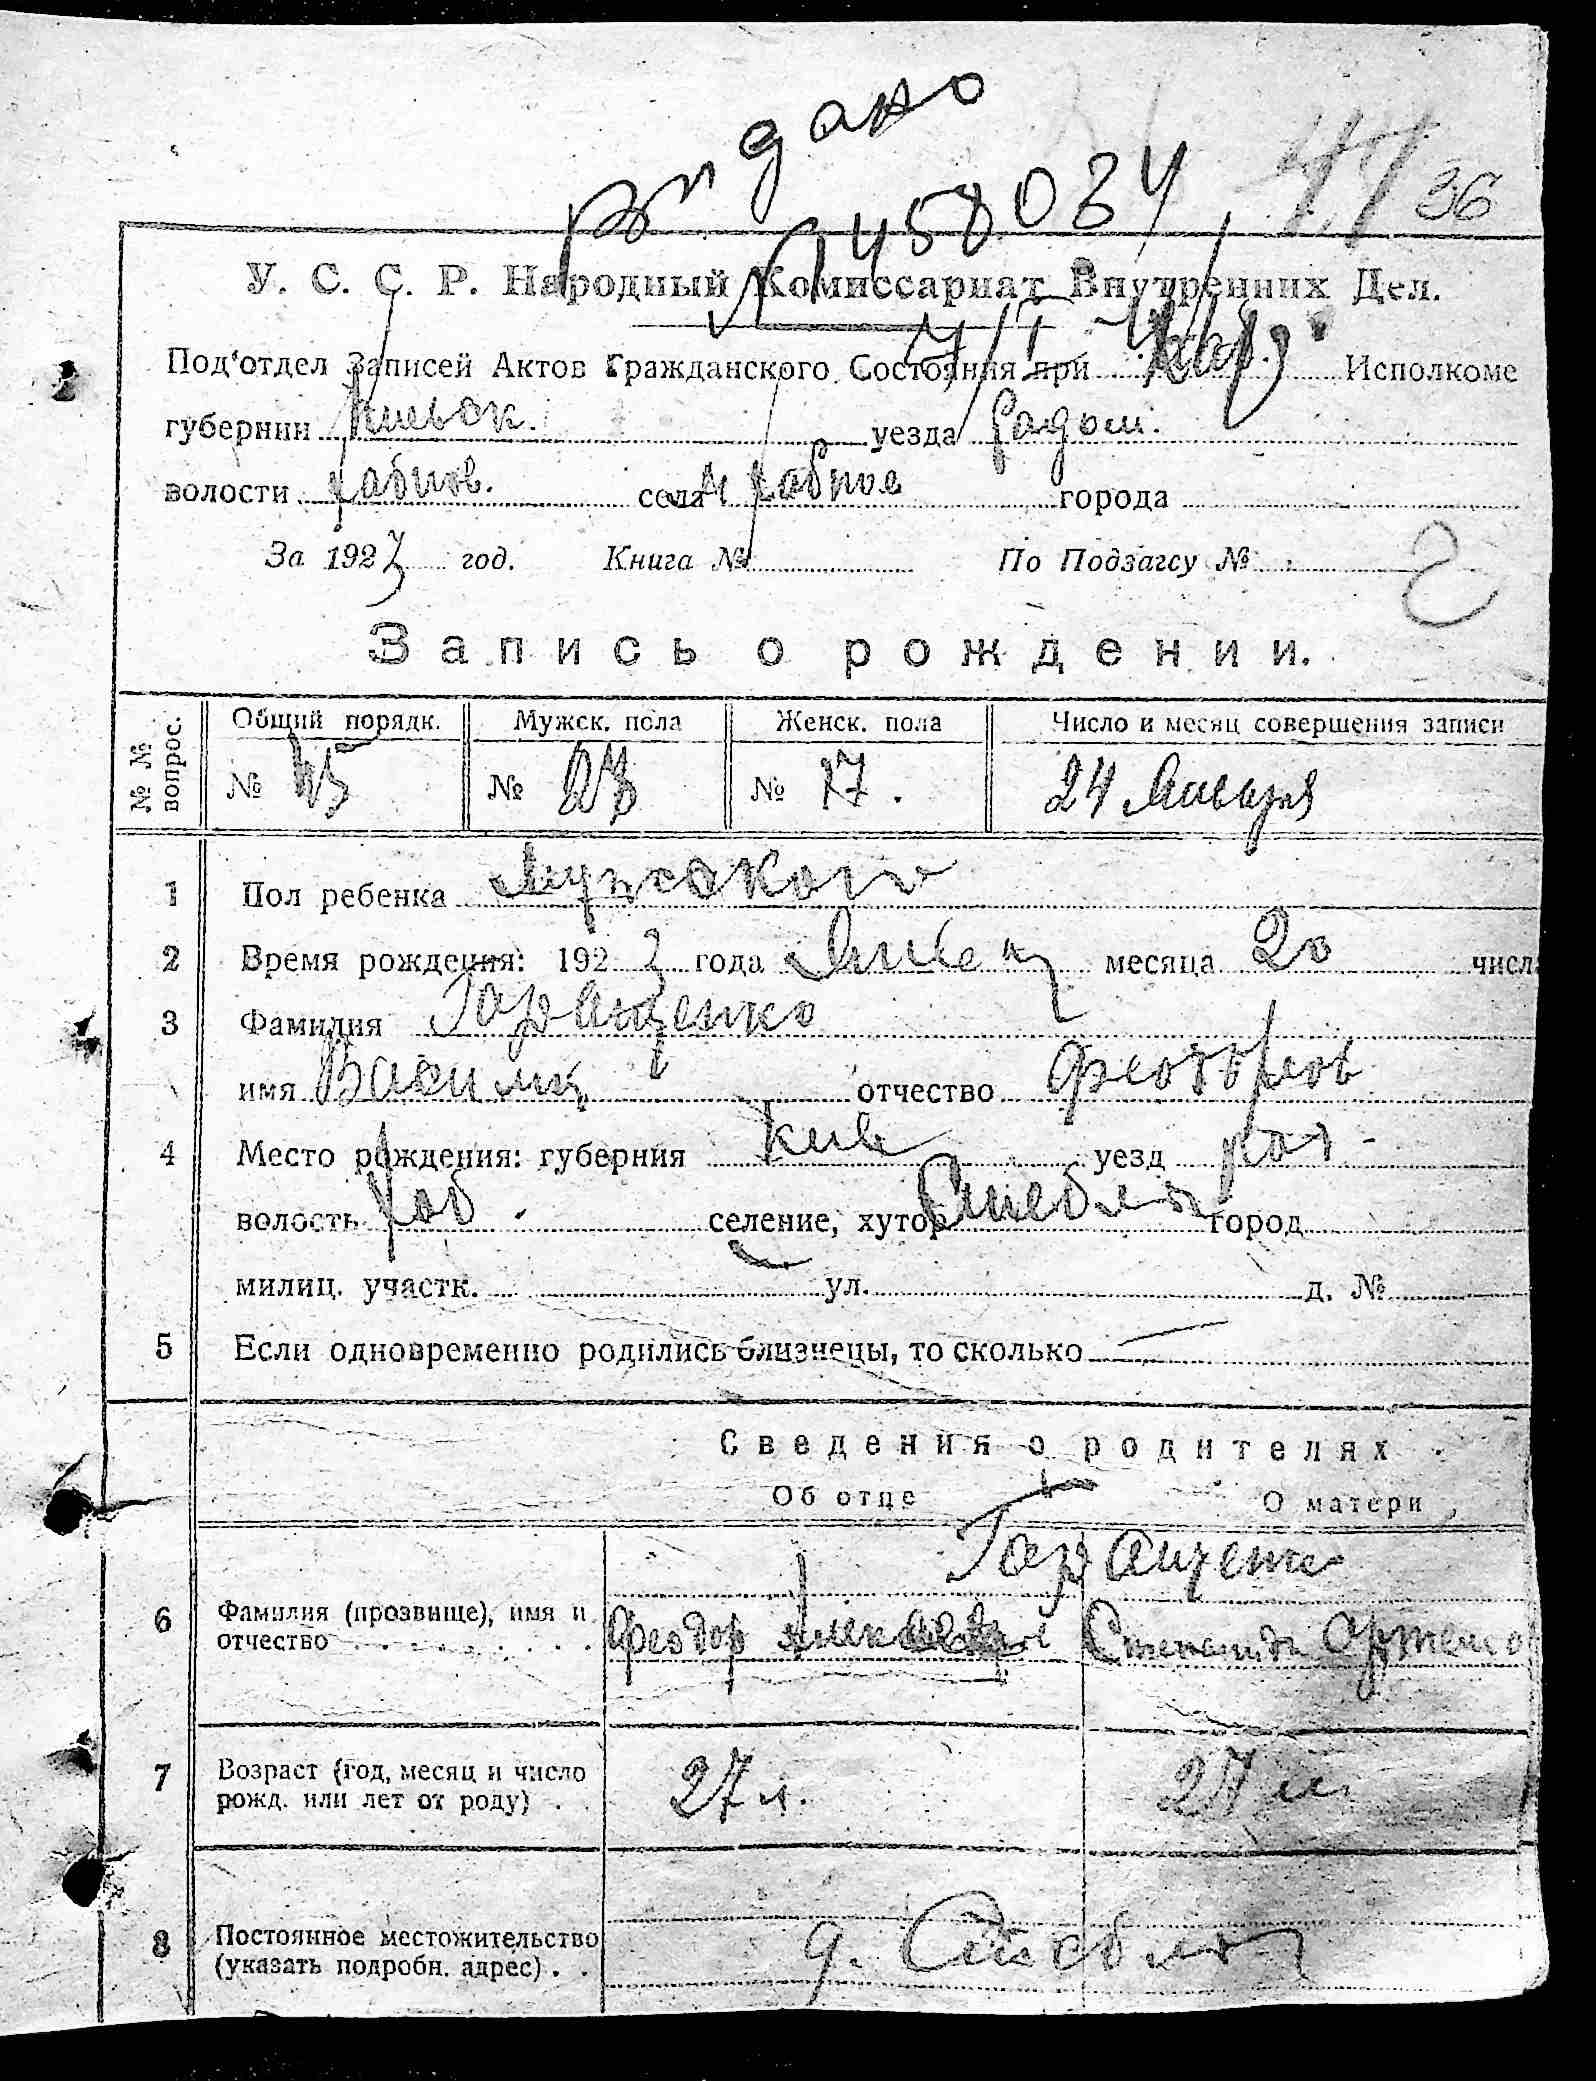 видано
458034
36
У. С. С. Р. Народный Комиссариат Внутренних Дел.
Под'отдел Записей Актов Гражданского Состояния при Исполкоме
губернии Киевск. уезда Радом.
волости Хабнов. села м Хабное города
За 1923 год. Книга № По Подзагсу №
Запись о рождении.
№ № вопрос. Общий порядк. Мужск. пола Женск. пола Число и месяц совершения записи
№ 45 № 28 № 17. 24 Января
1 Пол ребенка Мужского
2 Время рождения: 1923 года Январ месяца 20 числ
3 Фамилия Гаращенко
имя Василий отчество Феодоров
4 Место рождения: губерния Киев уезд Рад
волость Хаб. селение, хутор Стебля город
милиц. участк. ул. д. №
5 Если одновременно родились близнецы, то сколько —
Сведения о родителях
Об отце О матери
Гаращенко
6 Фамилия (прозвище), имя и отчество Феодор Степанида Артемов
7 Возраст (год, месяц и число рожд. или лет от роду) 27 л. 27 л.
8 Постоянное местожительство (указать подробн. адрес) д. Стебля